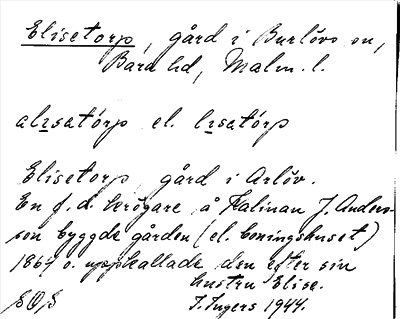 Elisetorp, gård i Burlövs sn,
Bara hd, Malm. l.
alısatórp el. lısatórp
Elisetorp gård i Arlöv.
En f. d. krögare å Kalinan J. Anders-
son byggde gården (el. boningshuset)
1867 o. uppkallade den efter sin
hustru Elise.
I. Ingers 1944.